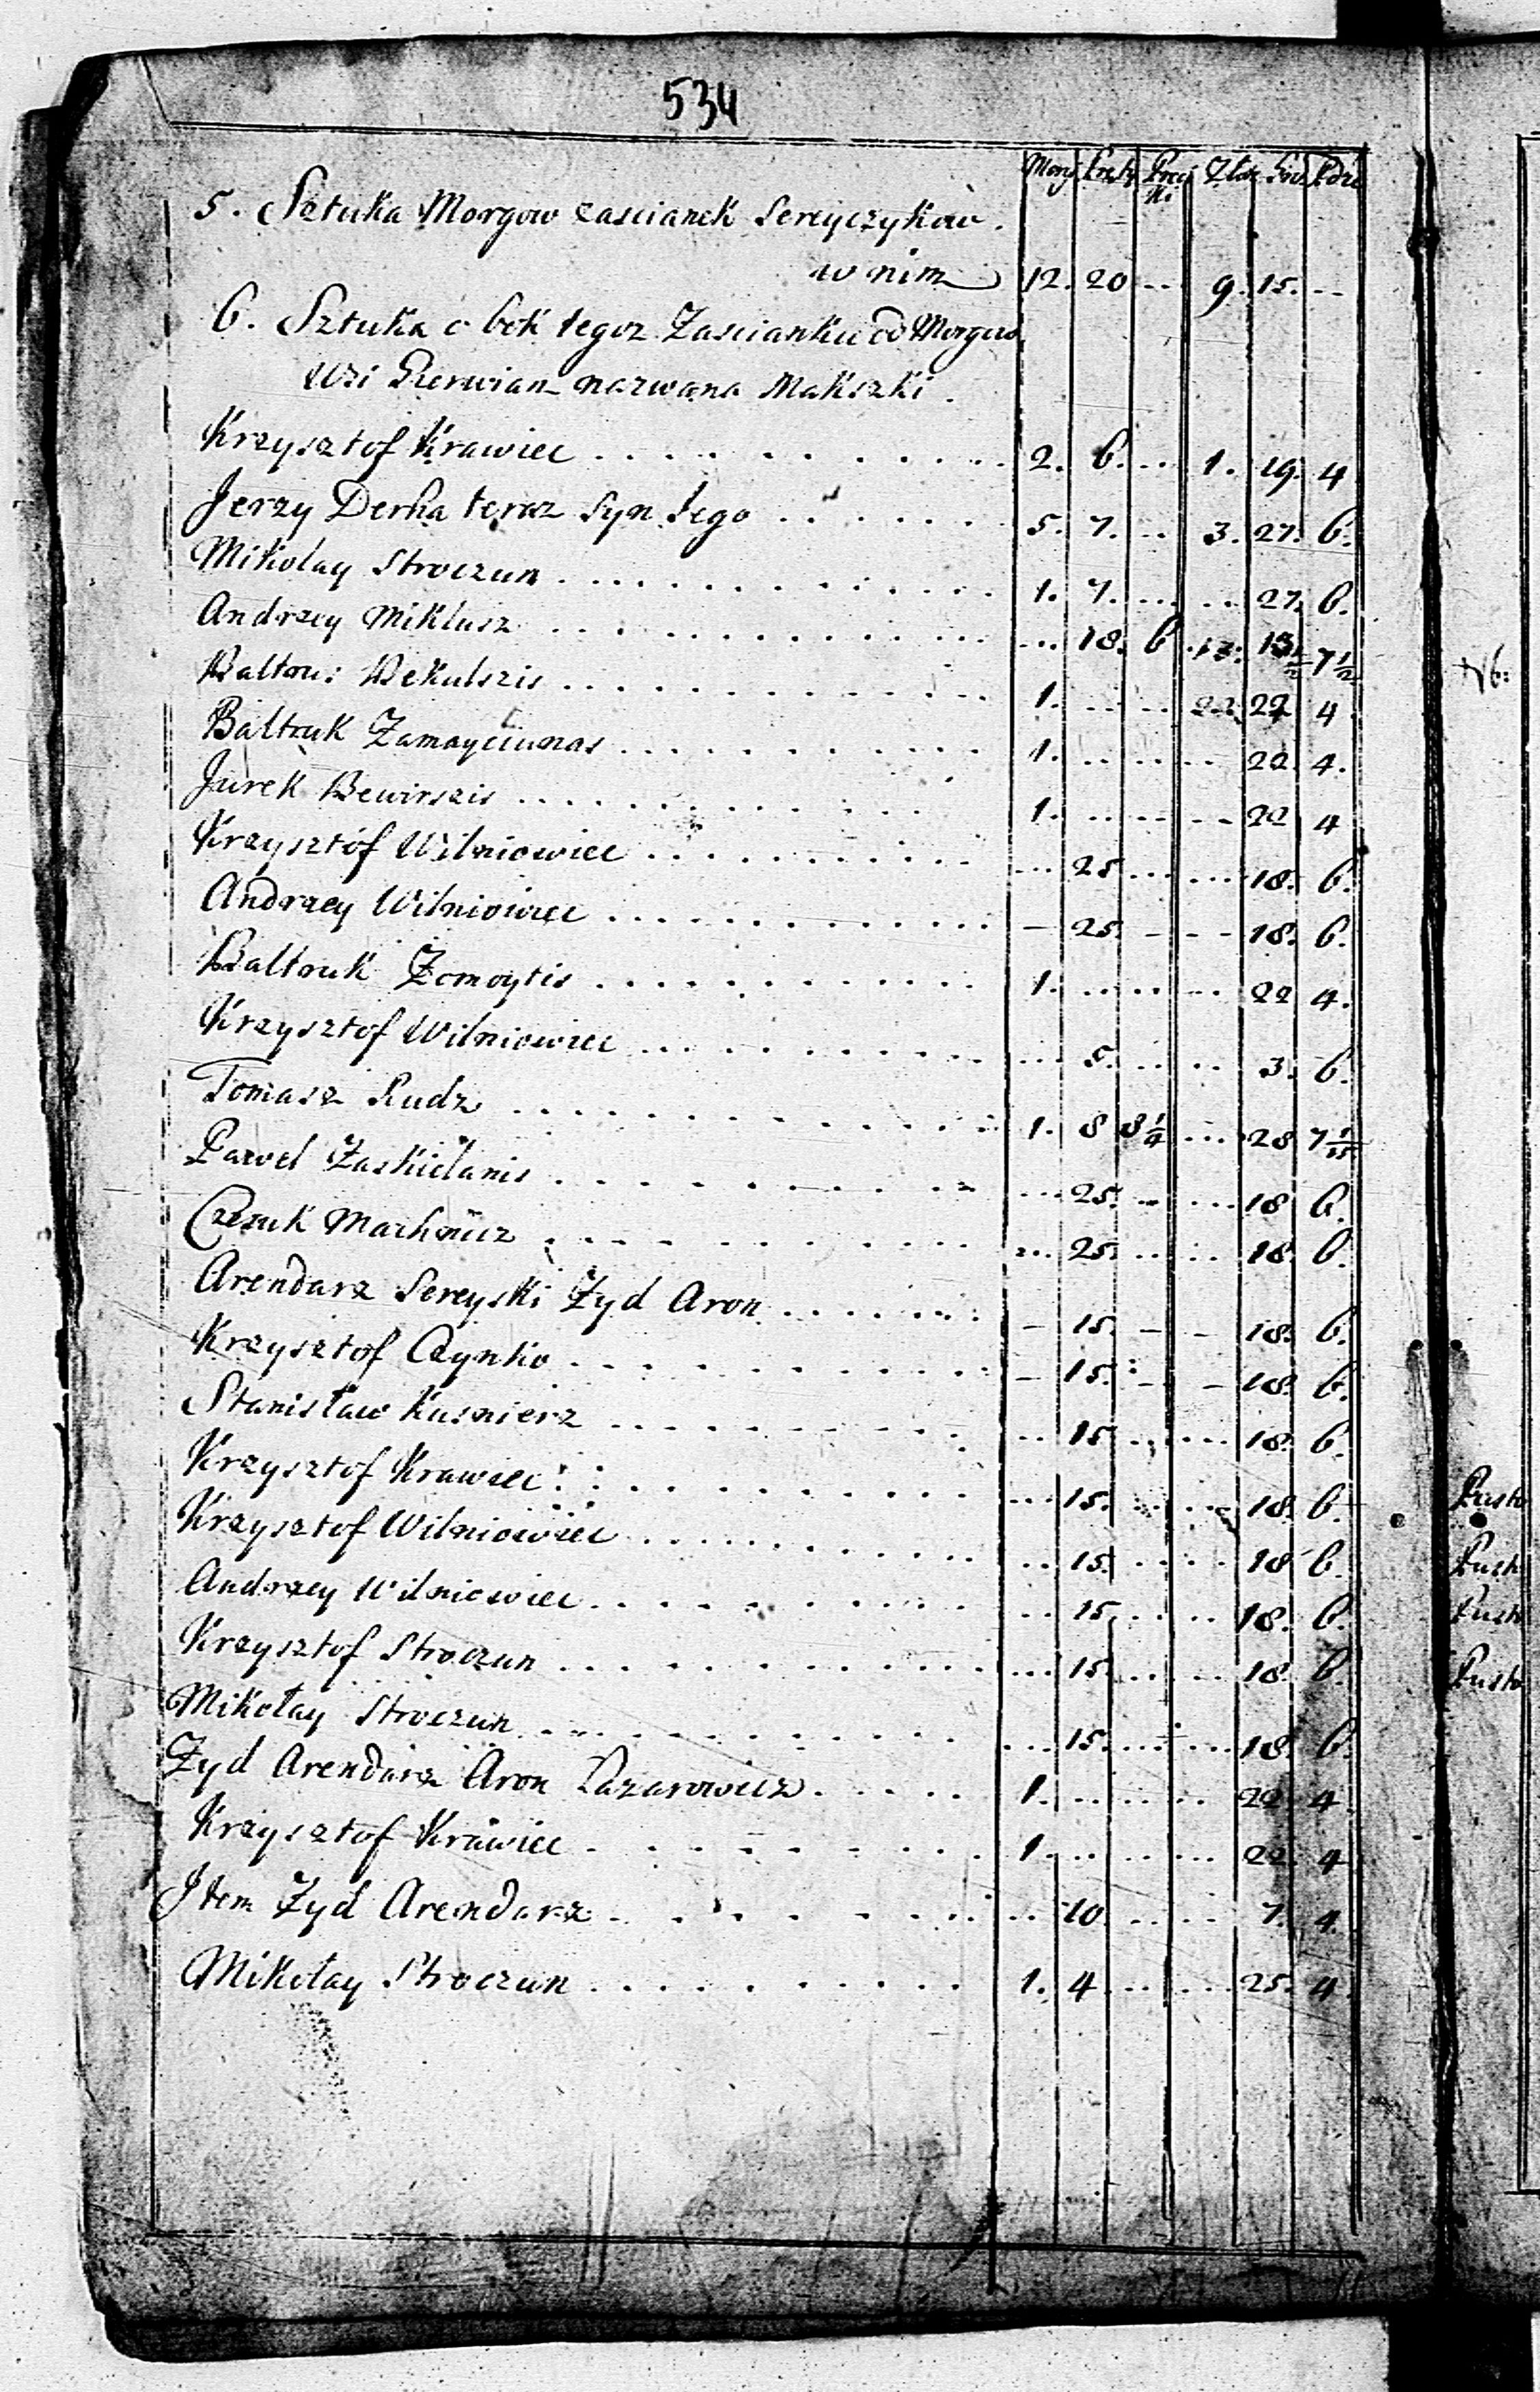 534
Morg Pręt Pręci ki Złot Gro. Pdzie
5. Sztuka Morgow zascianek Sereyczykow.
w nim 12. 20 ... 9. 15. ...
6. Sztuka o bok tegoz Zascianku od Morgow
Wsi nazwana Makszki.
Krzysztof Krawiec . . . 2. 6. ... 1. 19. 4
Jerzy Derha teraz Syn Jego . . . 5. 7. ... 3. 27. 6.
Mikolay Stroczun . . . 1. 7. ... ... 27. 6.
Andrzey Miklusz . . . ... 18. 6 13. 7½
Baltru: Bekulszis . . . 1. ... ... 22 22 4
Baltruk Zamayciunas . . . 1. ... ... 22. 4.
Jurek Bewirszis . . . 1. ... ... 22 4
Krzysztof Wilniowiec . . . ... 25 ... ... 18. 6.
Andrzey Wilniowiec . . . – 25. – – 18. 6.
Baltruk Zomoytis . . . 1. ... ... 22 4.
Krzysztof Wilniowiec . . . ... 5. ... ... 3. 6.
Tomasz Rudz . . . 1. 8 8¼ ... 28 7
Pawel Zaskielanis . . . ... 25. ... ... 18 6.
Czesuk Machowicz . . . ... 25. ... ... 18. 6.
Arendarz Sereyski Zyd Aron . . . – 15. – – 18. 6.
Krzysztof Czynko . . . – 15. – – 18. 6.
Stanisław Kusnierz . . . ... 15 ... ... 18. 6.
Krzysztof Krawiec . . . ... 15. ... ... 18. 6.
Krzysztof Wilniowiec . . . ... 15. ... ... 18 6.
Andrzey Wilniowiec . . . ... 15. ... ... 18. 6.
Krzysztof Stroczun . . . ... 15. ... ... 18. 6.
Mikołay Stroczun . . . ... 15. ... ... 18. 6.
Zyd Arendarz Aron Lazarowicz . . . 1. ... ... 22. 4
Krzysztof Krawiec . . . 1. ... ... 22. 4
Item Zyd Arendarz . . . ... 10. ... ... 7. 4.
Mikołay Stroczun . . . 1. 4 ... ... 25. 4.